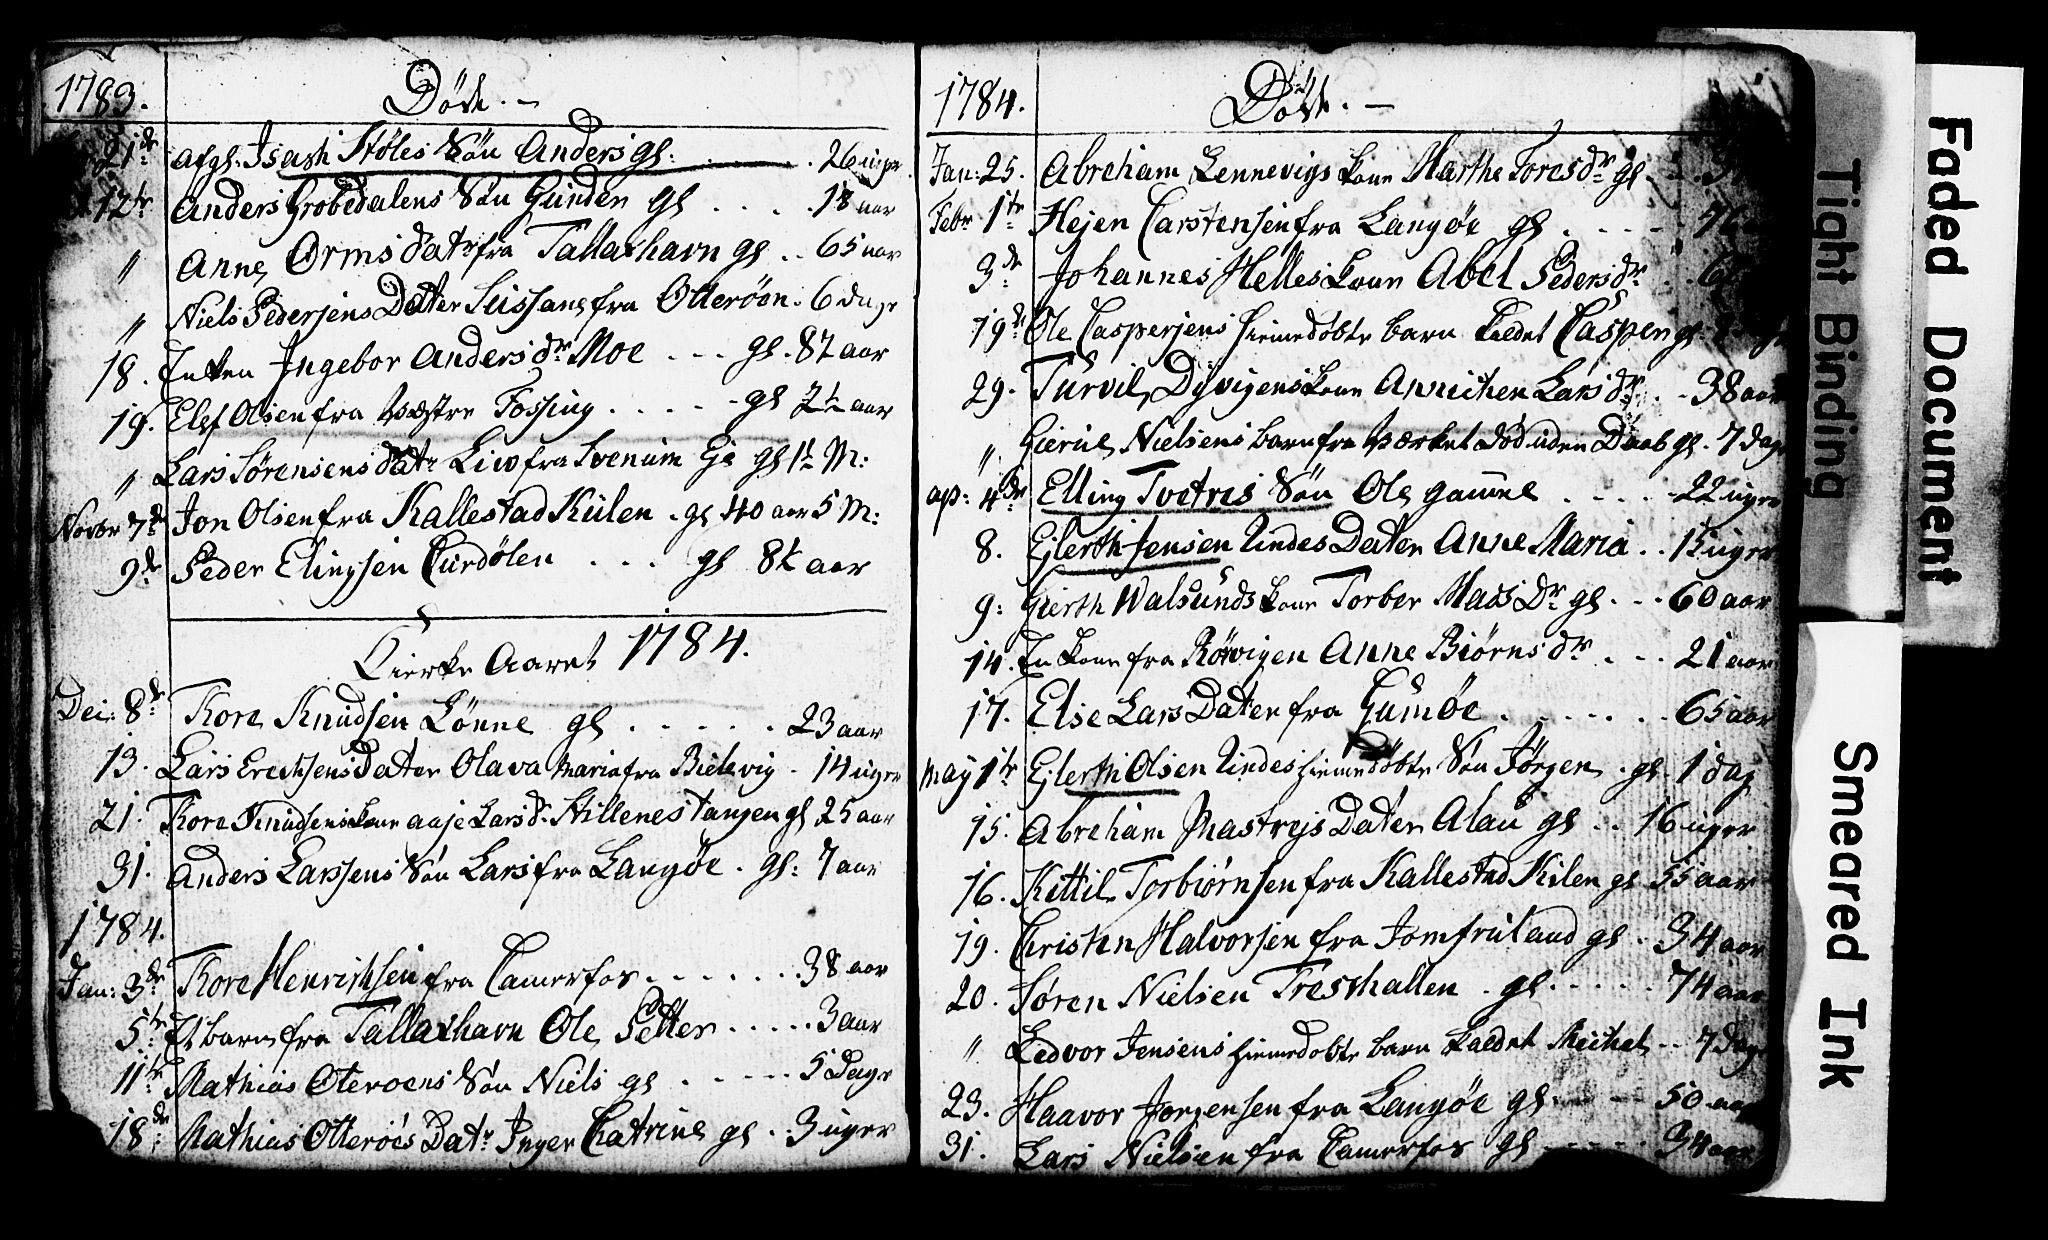 1783.
Døde. –
21de afgl: Isach Støles Søn Anders gl: . . . 26 uger
12te Anders Grobedalens Søn Gunder gl . . . . 18 aar
" Anne Orms datr fra Tallachavn gl . . 65 aar
" Niels Pedersens Dater Sissane fra Otterøen . 6 dage
18. Enken Ingebor Anders dr Moe . . . gl . 82 aar
19. Elef Olsen fra Vestre Fossing . . . . . . gl 2½ aar
" Lars Sørensens datr Liv fra Evenum Eje gl 1½ M:
Novbr 7de Jon Olsen fra Kallestad Kiilen . gl 40 aar 5 M:
9de Peder Elingsen Curdølen . . . . gl 8½ aar
Kierke Aaret 1784.
Dec: 8de Tore Knudsen Lønne gl . . . . . . 23 aar
13. Lars Erechsens Dater Olava Maria fra Bielevig . 14 uger
21. Tore Knudsens kone aase Lars dr Stillenestangen gl 25 aar
31. Anders Larssens Søn Lars fra Langøe . gl: 7 aar
1784.
Jan: 3de Tore Henrichsen fra Camerfos . . . . . . 38 aar
5te Et barn fra Tallachavn Ole Petter . . . . . 3 aar
11te Mathias Oteroens Søn Niels gl . . . . . 5 Dage
18de Mathias Otterøes Datr Inger Catrine gl . . 3 uger
1784.
Døde. –
Jan: 25. Abreham Lennevigs kone Marthe Tores dr gl
Febr 1te Hejen Carstensen fra Langøe gl . . . . . 76
3de Johannes Helles kone Abel Peders dr . .
19de Ole Caspersens hiemedøbte barn kaldet Casper gl.
29. Turvil Dyvigens kone Annichen Lars dr . . 38 aar
" Gierul Nielsens barn fra Værket død uden Daab gl . 7 dage
ap: 4de Elling Tvetres Søn Ole gamel . . . . . 22 uger
8. Ejlerth Jensen Lindes Dater Anne Maria . . 15 uger
9: Gierth Walsunds kone Torber Mass Dr gl . . . 60 aar
14. En kone fra Rørvigen Anne Biørns dr . . . 21 aar
17. Else Lars Dater fra Gumøe . . . . . . . 65 aar
may 1te Ejlerth Olsen Lindes hiemedøbte Søn Jørgen . gl . 1 dag
15. Abreham Mastrejs Dater Alau gl . . 16 uger
16. Kittil Torbiørnsen fra Kallestad Kilen gl 55 aar
19. Christen Halvorsen fra Jomfruland gl . 34 aar
20. Søren Nielsen Treschallen . gl . . . . . 74 aar
" Ledvor Jensens hiemedøbte barn kaldet Michel . . 7 Dage
23. Haavor Jørgensen fra Langøe gl . . . . 50 aar
31. Lars Nielsen fra Camerfos gl . . . . . . 34 aar
Faded Document
Tight Binding
Smeared Ink